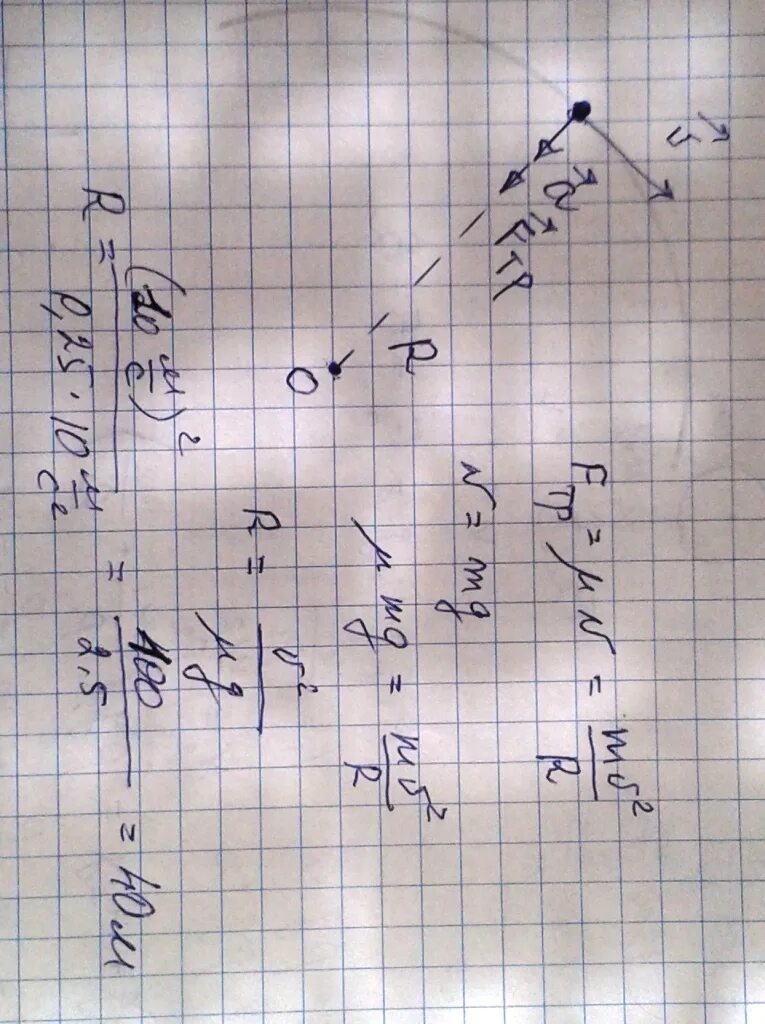 v⃗
a⃗
F⃗тр
R
O
Fтр = μN = mv²/R
N = mg
μmg = mv²/R
R = v²/μg
R = (10 м/с)² / 0,25 · 10 м/с² = 100/2.5 = 40м